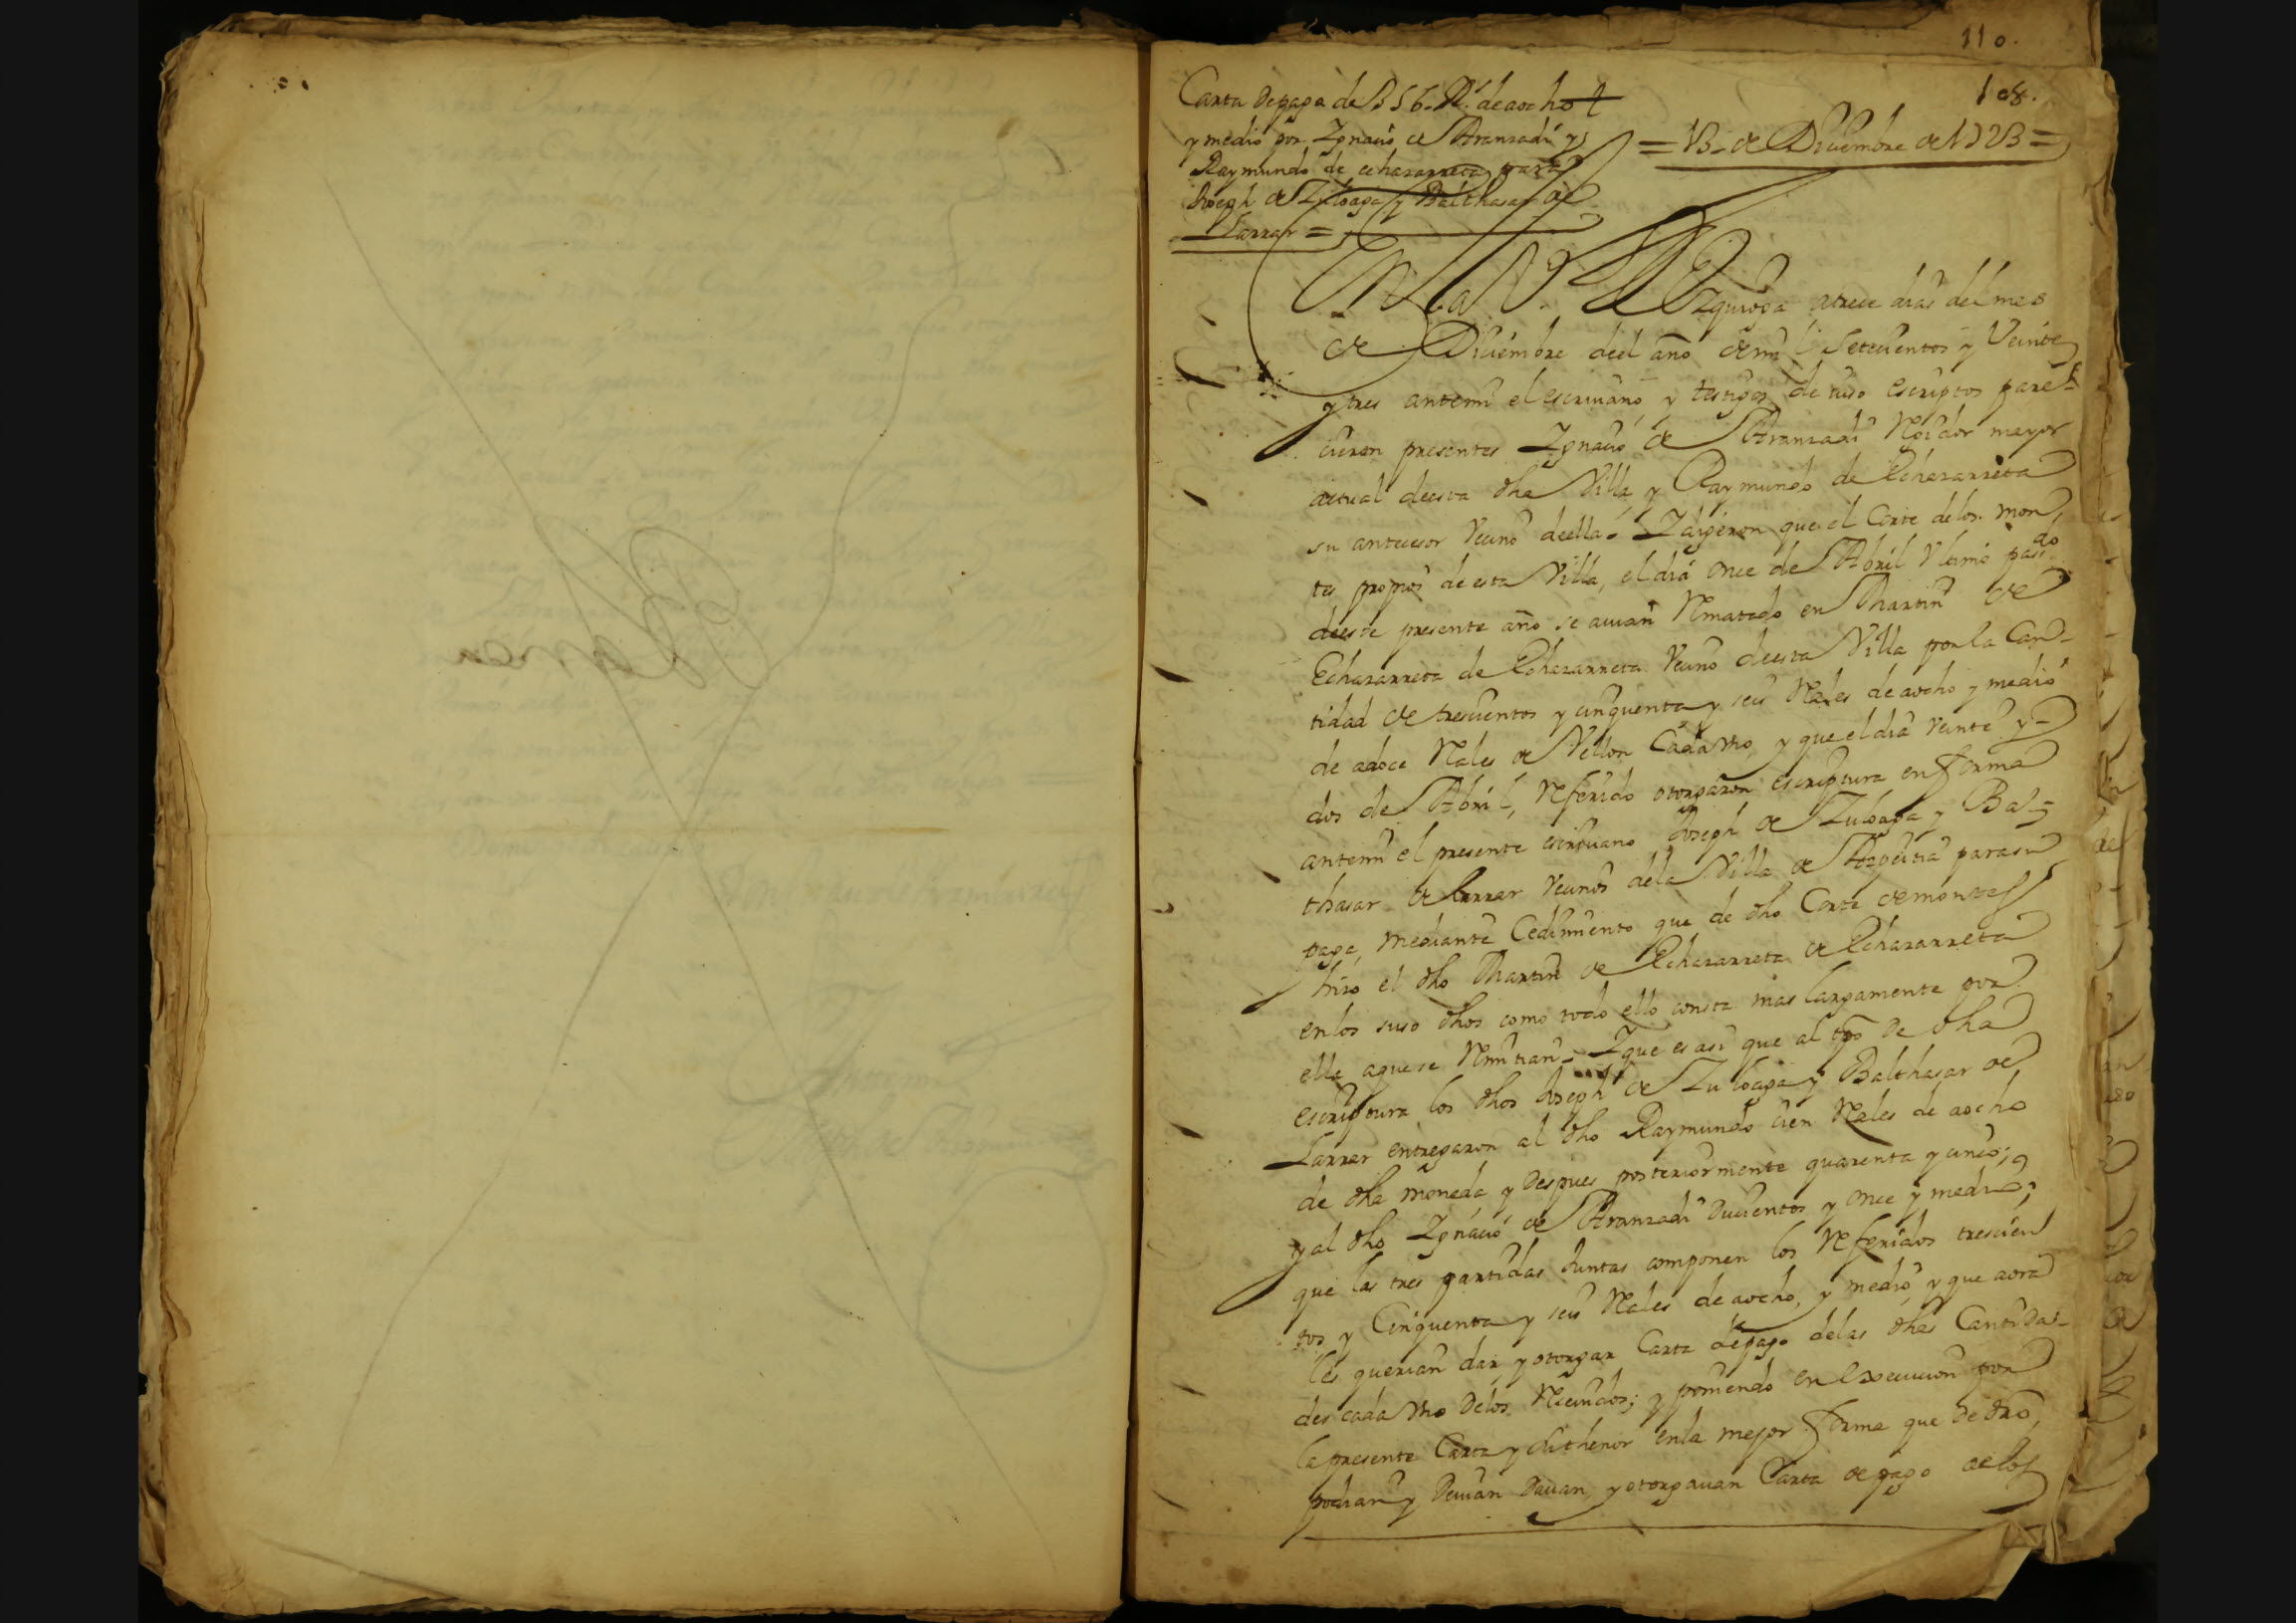 110.
108.
Carta de paga de 356. Rs. de aocho
y medio por Ygnacio de Aranzadi y
Raymundo de echazarreta para
Joseph de Zuloaga y Balthasar de
Larrar =
= 13 de Diciembre de 1723 =
En la Vª de Ezquioga atrece dias del mes
de Diciembre deel año de mil Setecientos y Veinte
y tres antemi el escriuano y testigos de iuso escriptos pare-
cieron presentes Ygnacio de Aranzadi Rejidor mayor
actual deesta dha Villa y Raymundo de Echazarreta
su antecesor Vecino deella. Y dixeron que el Corte delos mon-
tes propios de esta Villa, el dia once de Abril Vltimo passdo
deeste presente año se auian Rematado en Martin de
Echazarreta de Echazarreta Vecino deesta Villa por la Can-
tidad de trescientos y cinquenta y seis Reales de aocho y medio
de adoce Reales de Vellon Cada Vno, y que el dia veinte y
dos de Abril, Referido otorgaron escriptura en forma
antemi el presente escriuano Joseph de Zuloaga y Bal-
thasar de Larrar Vecinos dela Villa de Azpeitia para su
paga, mediante Cedimiento que de dho Corte de montes
hizo el dho Martin de Echazarreta de Echazarreta
en los suso dhos como todo ello consta mas largamente por
ella aquese Remitian. Y que es asi que al tpo de dha
escriptura los dhos Joseph de Zuloaga y Balthasar de
Larrar entregaron al dho Raymundo cien Reales de aocho
de dha moneda y despues posteriormente quarenta y cinco;
y al dho Ygnacio de Aranzadi Ducientos y once y medio;
que las tres partidas Juntas componen los Referidos trescien
tos y Cinquenta y seis Reales de aocho, y medio, y que aora
les querian dar y otorgar Carta de pago delas dhas Cantida-
des cada Vno Delos Reciuidos; y poniendo en Execucion por
la presente Carta y su thenor en la mejor forma que de dro
podian y Deuian Dauan, y otorgauan Carta de pago delos